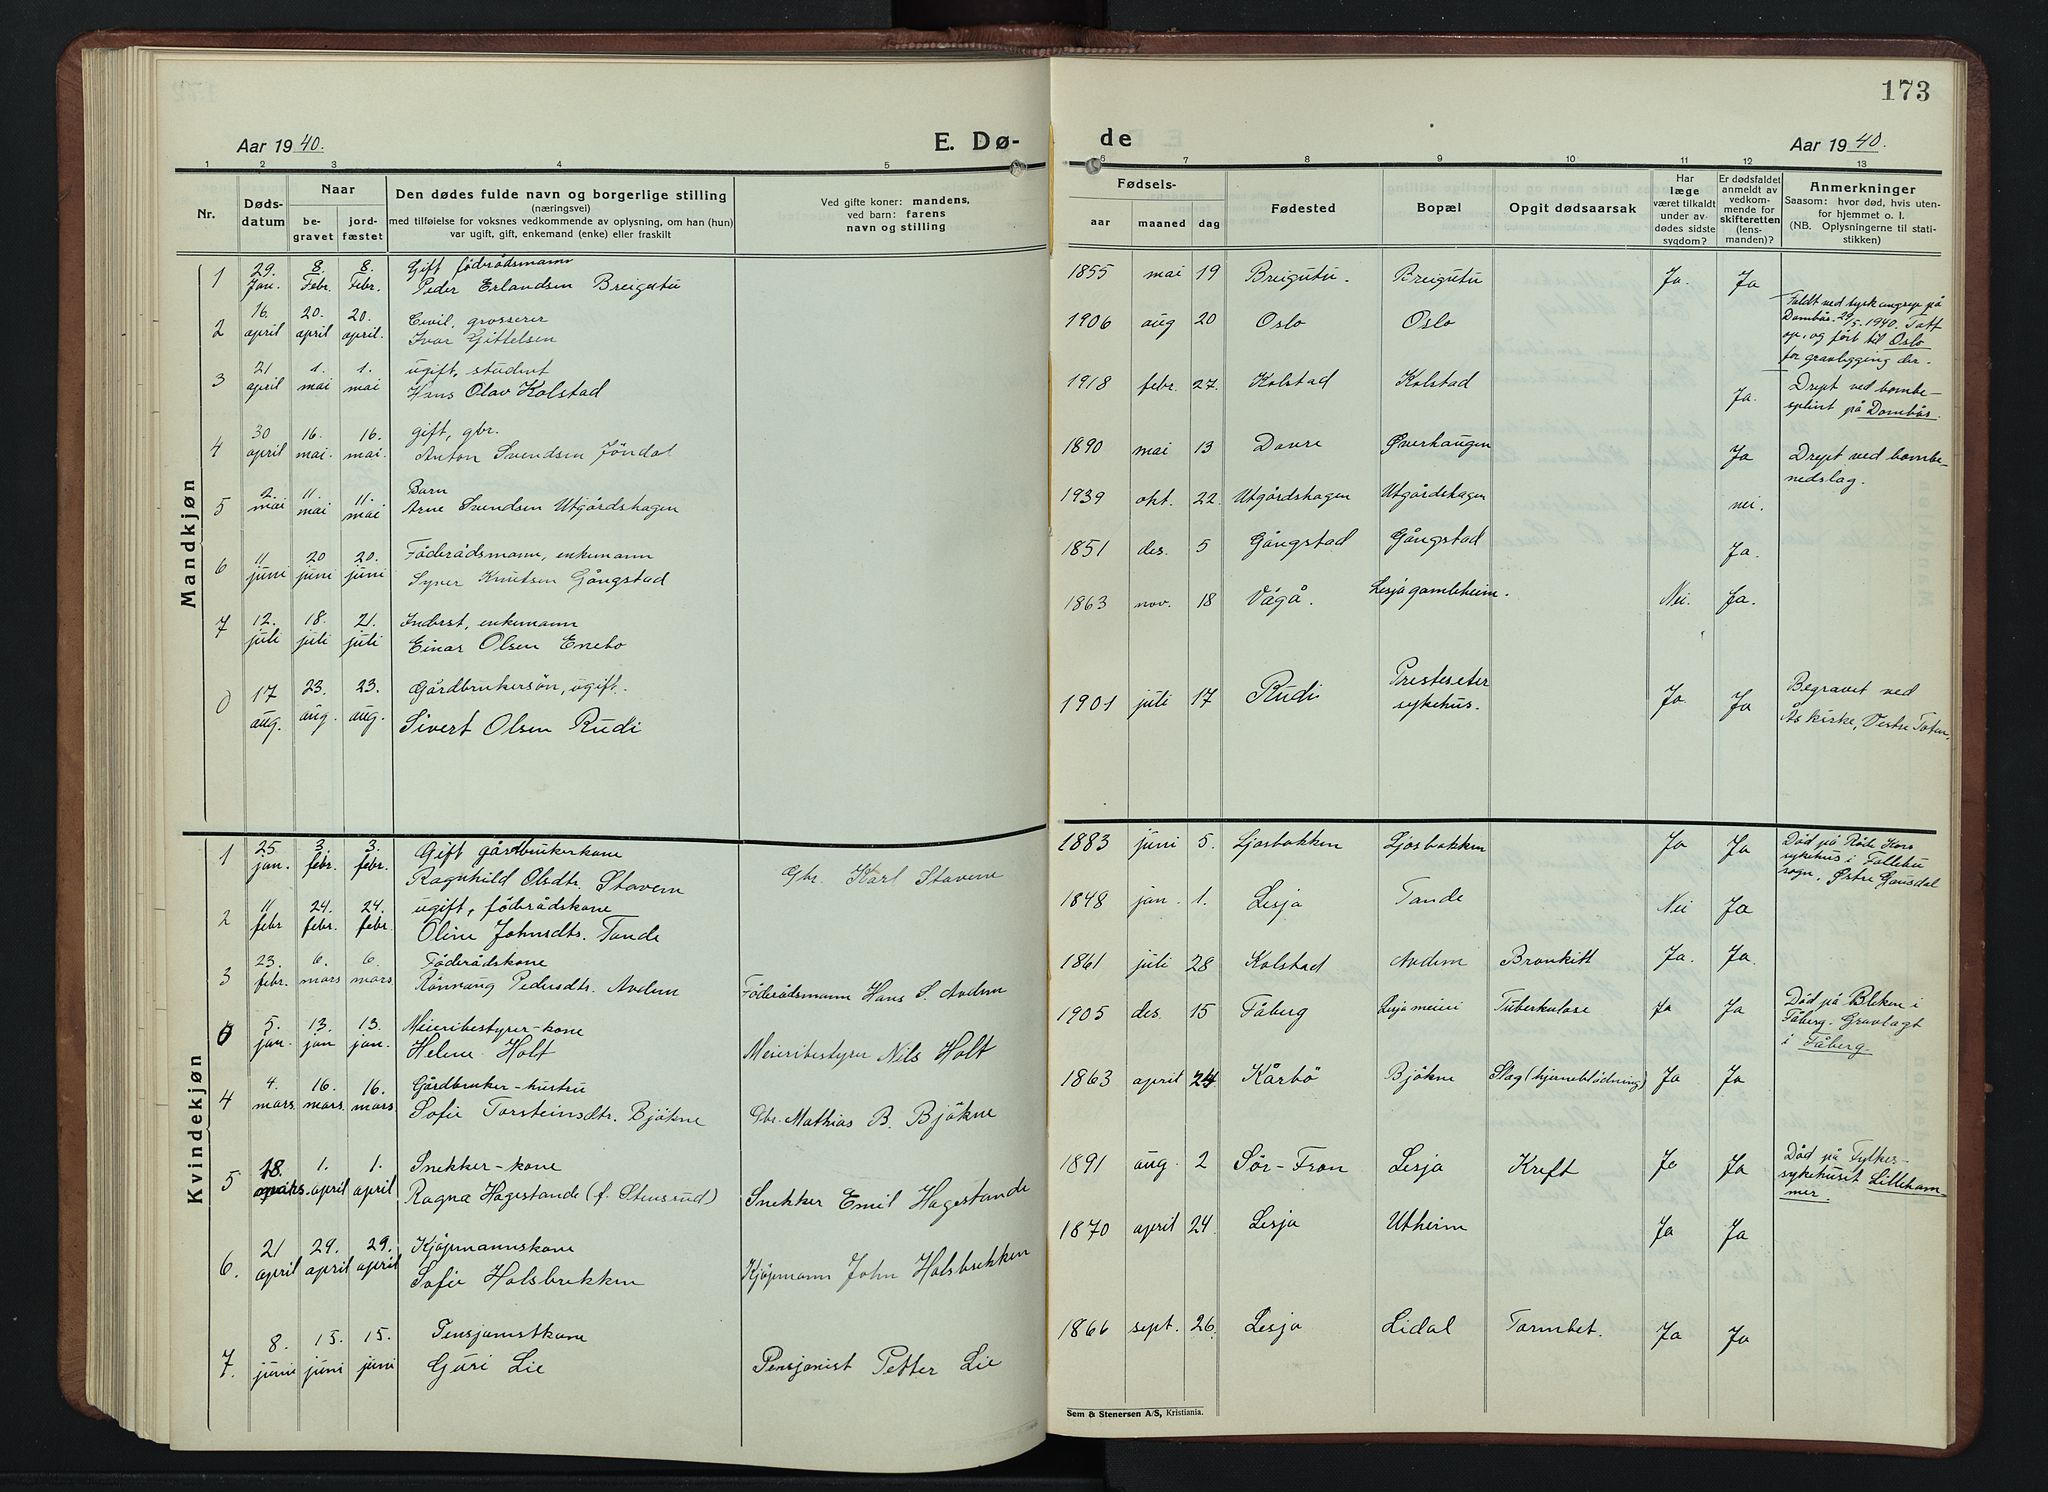 173
Aar 1940.
E. Dø-
de
Aar 1940.
1 2 3 4 5
6 7 8 9 10 11 12 13
Nr.
Døds-
datum
Naar
be-
gravet
jord-
fæstet
Den dødes fulde navn og borgerlige stilling
(næringsvei)
med tilføielse for voksnes vedkommende av oplysning, om han (hun)
var ugift, gift, enkemand (enke) eller fraskilt
Ved gifte koner: mandens,
ved barn: farens
navn og stilling
Fødsels-
aar maaned dag
Fødested
Bopæl
Opgit dødsaarsak
Har
læge
været tilkaldt
under av-
dødes sidste
sygdom?
Er dødsfaldet
anmeldt av
vedkom-
mende for
skifteretten
(lens-
manden)?
Anmerkninger
Saasom: hvor død, hvis uten-
for hjemmet o. l.
(NB. Oplysningerne til stati-
stikken)
Mandkjøn
1 29. Jan. 8. Febr. 8. Febr. Gift föderådsmann
Peder Erlandsen Breigutu
1855 mai 19 Breigutu. Breigutu Ja. Ja
2 16. april 20. april 20. april. Civil, grosserer
Ivar Gittelsen
1906 aug 20 Oslo Oslo
Faldt ved tysk angrep på
Dombås. 29/5. 1940. Tatt
op, og ført til Oslo
for gravlegging der.
3 21 april 1. mai 1. mai ugift, student
Hans Olav Kolstad
1918 febr. 27. Kolstad Kolstad Ja.
Drept ved bombe-
splint på Dombås.
4 30 april 16. mai. 16. mai. gift, gbr.
Anton Svendsen Jöndal
1890 mai 13 Dovre Øverhaugen Ja
Drept ved bombe-
nedslag.
5 2. mai 11. mai 11. mai Barn
Arne Svendsen Utgårdshagen
1939 okt. 22. Utgårdshagen Utgårdshagen nei.
6 11 juni 20 juni 20. juni Föderådsmann, enkemann
Syver Knutsen Gångstad
1851 des. 5 Gångstad Gångstad Ja.
7 12. juli 18. juli 21. juli Inderst, enkemann
Einar Olsen Enebo
1863 nov. 18 Vågå. Lesja gamleheim. Nei. Ja.
0 17 aug. 23. aug. 23. aug. Gårdbrukersön, ugift.
Sivert Olsen Rudi
1901 juli 17 Rudi Presteseter
sykehus. Ja. Ja
Begravet ved
Ås kirke, Vestre Toten.
Kvindekjøn
1 25. jan. 3. febr. 3. febr. Gift gårdbrukerkone
Ragnhild Olsdtr. Stavem
Gbr. Karl Stavem
1883 juni 5. Ljosbakken Ljosbakken Ja Ja
Död på Röde Kors
sykehus i Follebu
sogn, Østre Gausdal
2 11 febr 24. febr. 24. febr. ugift, föderådskone
Oline Johnsdtr. Tande
1848 jan. 1. Lesja Tande Nei Ja
3 23. febr. 6. mars 6. mars. Föderådskone
Rönnaug Pedersdtr. Avdem
Föderådsmann Hans S. Avdem
1861 juli 28 Kolstad Avdem Bronkitt Ja. Ja.
0 5. jan. 13. jan 13. jan. Meieribestyrer-kone
Helene Holt
Meieribestyrer Nils Holt
1905 des. 15 Fåberg Lesja meieri Tuberkulose Ja Ja
Död på Bleken i
Fåberg. Gravlagt
i Fåberg.
4 4. mars. 16. mars. 16. mars. Gårdbruker-hustru
Sofie Torsteinsdtr. Bjökne
Gbr. Mathias B. Bjökne
1863 april 24 Kårbö Bjökne Slag (hjerneblödning) Ja Ja
5 18. mars. 1. april 1. april Snekker-kone
Ragna Hagestande (f. Stensrud)
Snekker Emil Hagestande
1891 aug. 2 Sör-Fron Lesja Kreft Ja Ja
Död på Fylkes-
sykehuset Lilleham-
mer.
6. 21 april 29. april 29. april Kjöpmannskone
Sofie Holsbrekken
Kjöpmann John Holsbrekken
1870 april 24 Lesja Utheim Ja Ja
7. 8. juni 15. juni 15. juni Pensjonistkone
Guri Lie
Pensjonist Petter Lie
1866 sept. 26. Lesja Lidal Tarmbet. Ja Ja
Sem & Stenersen A/S, Kristiania.